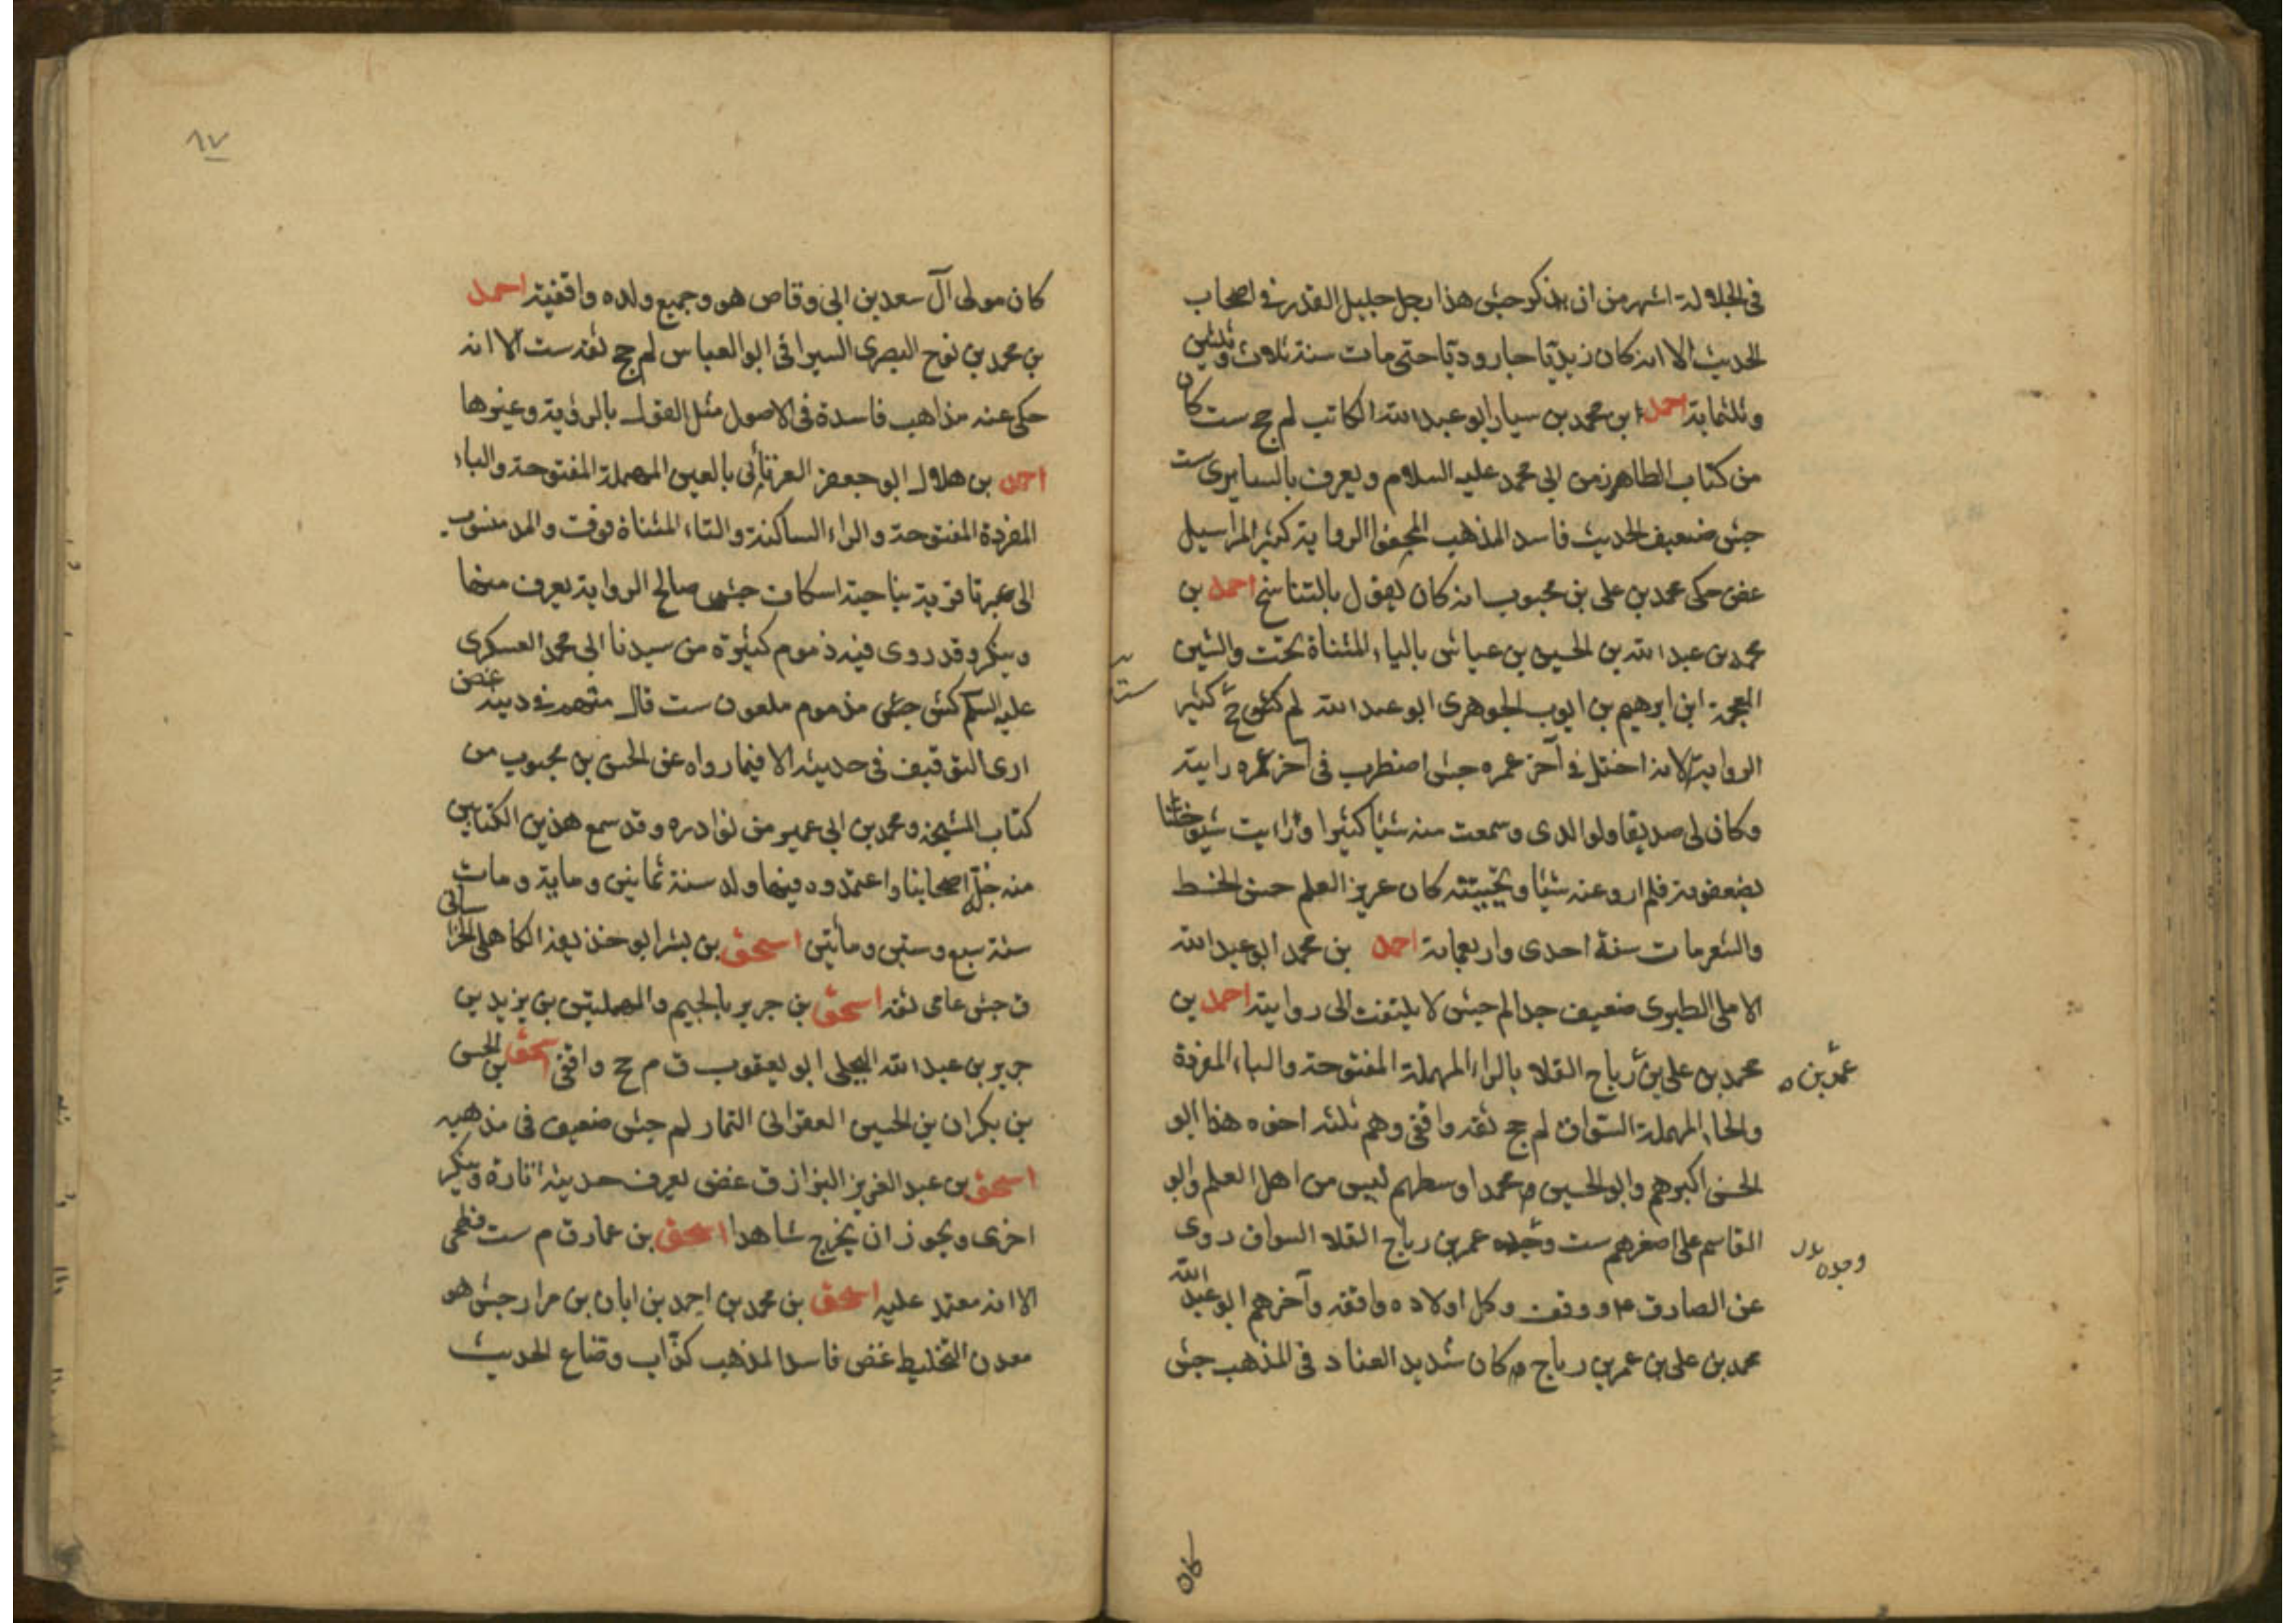 فى الجلالة اشهر من ان يذكر جش هذا رجل جليل القدر فى اصحاب
الحديث الا انه كان زيديا جاروديا حتى مات سنة ثلاث وثلثين
وثلثماية احمد بن محمد بن سيار ابو عبد الله الكاتب لم جخ ست كان
من كتاب الطاهر زمن ابى محمد عليه السلام ويعرف بالسيارى ست
جش ضعيف الحديث فاسد المذهب مجفو الرواية كثير المراسيل
غض حكى محمد بن على بن محبوب انه كان يقول بالتناسخ احمد بن
محمد بن عبد الله بن الحسين بن عياش بالياء المثناة تحت والشين
المعجمة ابن ابرهيم بن ايوب الجوهرى ابو عبد الله لم كثير
الرواية الا انه اختل فى آخر عمره جش اضطرب فى آخر عمره رايته
وكان لى صديقا ولوالدى وسمعت منه شيئا كثيرا ورايت شيوخنا
يضعفونه فلم ارو عنه شيئا وتجنبته كان عزيز العلم حسن الخط
والشعر مات سنة احدى واربعماية احمد بن محمد ابو عبد الله
الاملى الطبرى ضعيف جدا لم جش لا يلتفت الى روايته احمد بن
محمد بن على بن رباح القلا بالراء المهملة المفتوحة والباء المفردة
عمر بن
والحاء المهملة السواق لم جخ ثقه واقفى وهم ثلثه اخوه هذا ابو
الحسن اكبرهم وابو الحسين محمد اوسطهم ليس من اهل العلم وابو
القاسم على اصغرهم ست وجده عمر بن رباح القلا السواق روى
وجده
عن الصادق ووقف وكل اولاده واقفه وآخرهم ابو عبد الله
محمد بن على بن عمر بن رباح كان شديد العناد فى المذهب جش
كان
كان مولى آل سعد بن ابى وقاص هو وجميع ولده واقفية احمد
بن محمد بن نوح البصرى السيرافى ابو العباس لم جخ ثقه ست الا انه
حكى عنه مذاهب فاسدة فى الاصول مثل القول بالرؤية وغيرها
احمد بن هلال ابو جعفر العبرتائى بالعين المهملة المفتوحة والباء
المفردة المفتوحة والراء الساكنة والتاء المثناة فوق والمد منسوب
الى عبرتا قرية بناحية اسكاف جش صالح الرواية يعرف منها
وينكر وقد روى فيه ذموم كثيرة من سيدنا ابى محمد العسكرى
عليه السلم كش جش مذموم ملعون ست قال متهم فى دينه غض
ارى التوقيف فى حديثه الا فيما رواه عن الحسن بن محبوب من
كتاب المشيخة ومحمد بن ابى عمير من نوادره وقد سمع هذين الكتابين
منه جل اصحابنا واعتمدوه فيها ولد سنة ثمانين وماية ومات
سنة سبع وستين ومأتين اسحق بن بشر ابو حذيفه الكاهلى الخراسانى
ق جش عامى ثقه اسحق بن جرير بالجيم والمهملتين بن يزيد بن
جرير بن عبد الله البجلى ابو يعقوب ق م جخ واقفى اسحق بن الحسن
بن بكران بن الحسين العقرانى التمار لم جش ضعيف فى مذهبه
اسحق بن عبد العزيز البزاز ق غض يعرف حديثه تارة وينكر
اخرى ويجوز ان يخرج شاهدا اسحق بن عمار ق م ست فطحى
الا انه معتمد عليه اسحق بن محمد بن احمد بن ابان بن مرار جش هو
معدن التخليط غض فاسد المذهب كذاب وضاع الحديث
٨٧